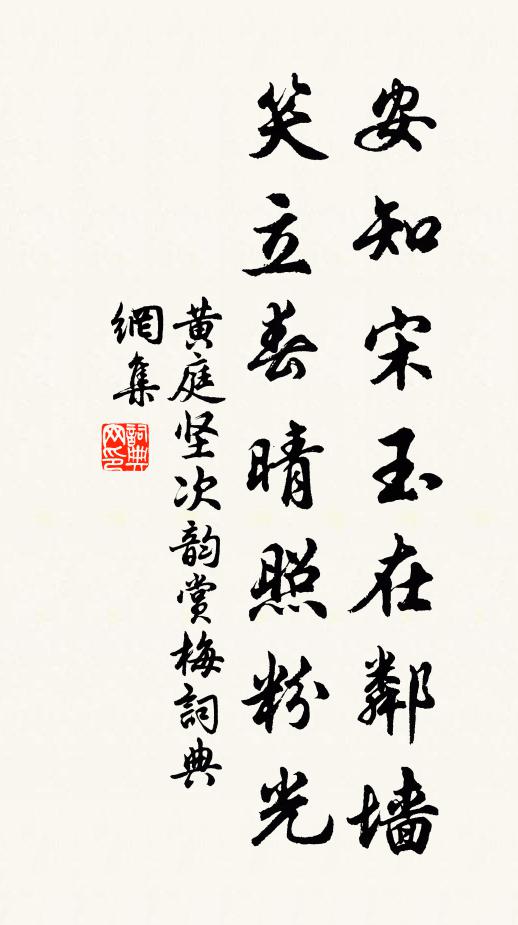 安知宋玉在鄰墙
笑立春晴照粉光
黄庭坚次韵賞梅詞典
網集
詞典
网印